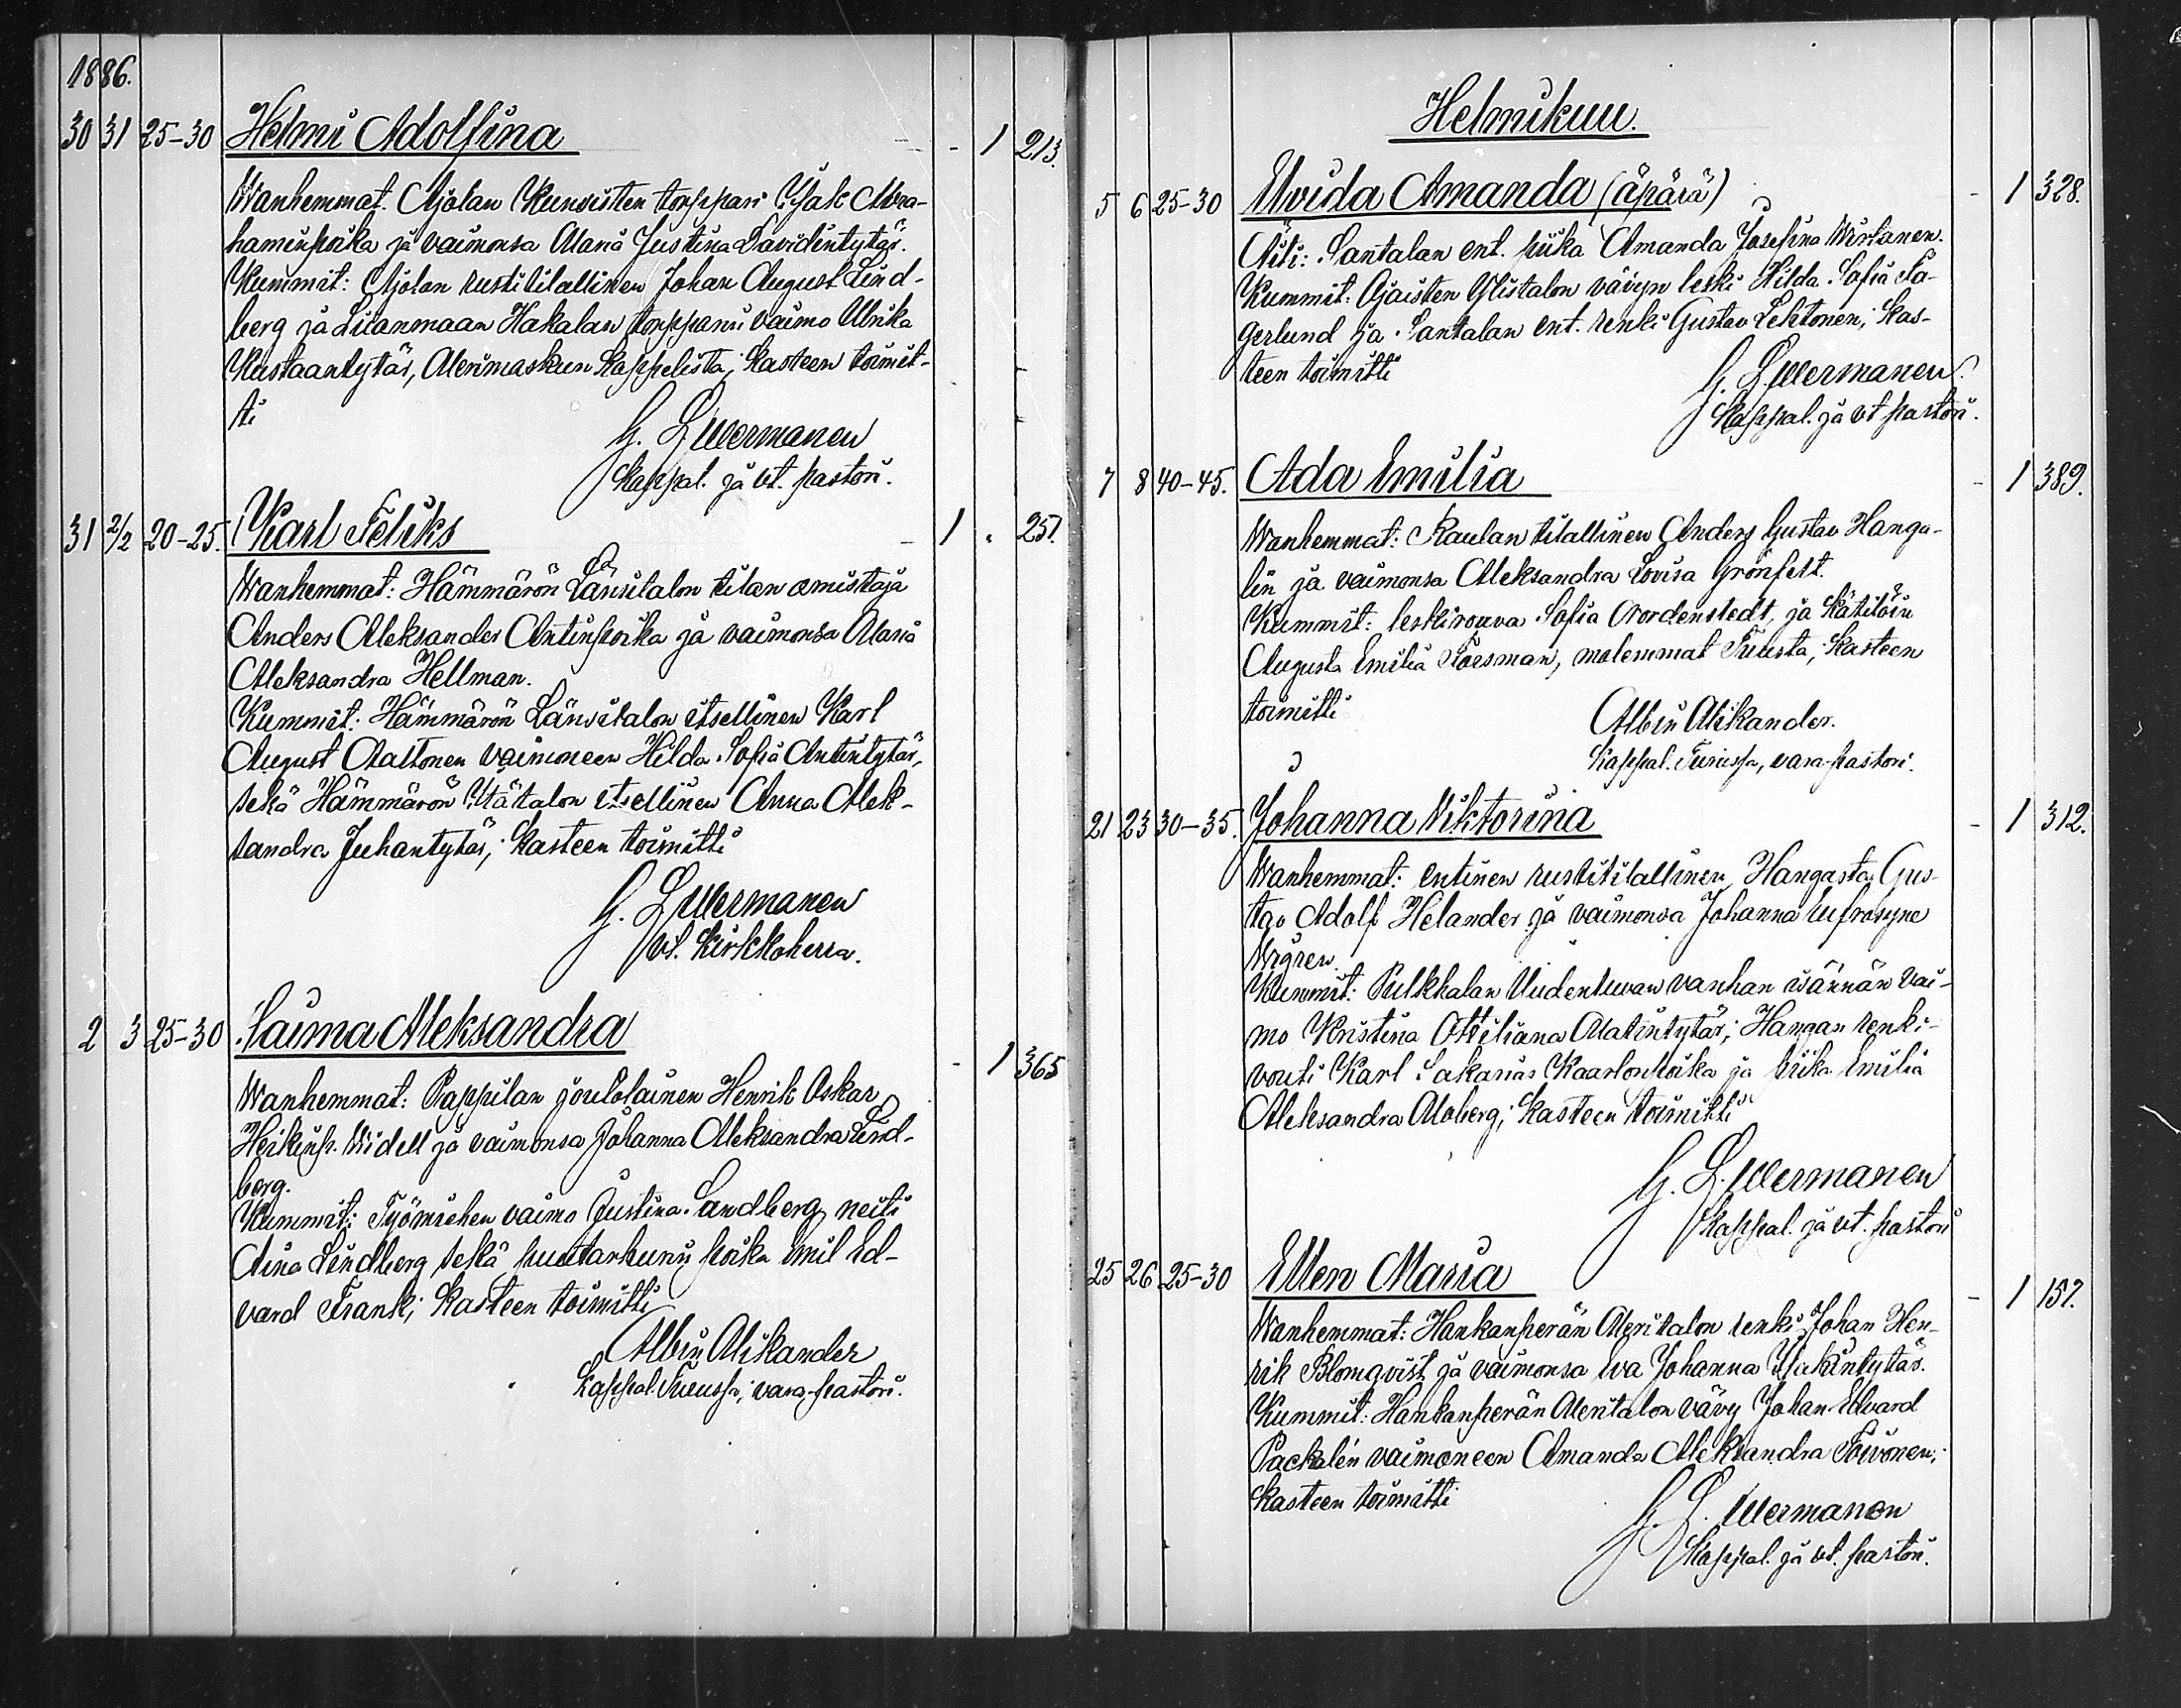 1886.
30 31 25-30 Helmi Adolfina - 1 213.
Wanhemmat: Ajolan torppari Isak Abra-
haminpoika ja vaimonsa Maria Justina Davidintytär.
Kummit: Ajolan rustitilallinen Johan August Lind-
berg ja Liianmaan Hakalan torpparin vaimo Ulrika
Kustaantytär, Merimaskun kappelista; kasteen toimit-
ti
G. L. Wermanen
kappal. ja vt. pastori.
31 2/2 20-25. Karl Feliks 1 - 251.
Wanhemmat: Hämmärön Länsitalon tilan omistaja
Anders Aleksander Antinpoika ja vaimonsa Maria
Aleksandra Hellman.
Kummit: Hämmärön Länsitalon itsellinen Karl
August Aaltonen vaimoneen Hilda Sofia Antintytär,
sekä Hämmärön Itätalon itsellinen Anna Alek-
sandra Juhantytär; kasteen toimitti
G. L. Wermanen
vt. kirkkoherra.
2 3 25-30 Saima Aleksandra - 1 365
Wanhemmat: Pappilan joutolainen Henrik Oskar
Heikinp. Widell ja vaimonsa Johanna Aleksandra Lind-
berg.
Kummit: Työmiehen vaimo Justina Sandberg, neiti
Aina Lindberg sekä puutarhurin poika Emil Ed-
vard Frank; kasteen toimitti
Albin Alikander
kappal. vara-pastori.
Helmikuu.
5 6 25-30 Elvida Amanda (äpärä) - 1 328.
Äiti: Santalan ent. piika Amanda Josefina Wirtanen.
Kummit: Ajaisten Ylistalon vävyn leski Hilda Sofia Fa-
gerlund ja Santalan ent. renki Gustav Lehtonen; kas-
teen toimitti
G. L. Wermanen
kappal. ja vt pastori.
7 8 40-45. Ada Emilia - 1 389.
Wanhemmat: Raulan tilallinen Anders Gustav Hange-
lin ja vaimonsa Aleksandra Lovisa Grönfelt.
Kummit: leskirouva Sofia Nordenstedt, ja kätilöin
Augusta Emilia Forsman, molemmat Turusta; kasteen
toimitti
Albin Alikander.
kappal. Turussa, vara-pastori.
21 23 30-35. Johanna Wiktorina - 1 312.
Wanhemmat: entinen rustitilallinen Hangasta Gus-
tav Adolf Helander ja vaimonsa Johanna Eufrosyne
Wigren.
Kummit: Pulkkalan Uudentuvan vanhan isännän vai-
mo Kristina Ottiliana Matintytär; Hangan renki-
vouti Karl Sakarias Kaarlonpoika ja piika Emilia
Aleksandra Moberg; kasteen toimitti
G. L. Wermanen
kappal. ja vt. pastori
25 26 25-30 Ellen Maria - 1 157.
Wanhemmat: Hankanperän Meritalon renki Johan Hen-
rik Blomqvist ja vaimonsa Eva Johanna Isakintytär.
Kummit: Hankanperän Meritalon vävy Johan Edvard
Packalén vaimoneen Amanda Aleksandra Toivonen;
kasteen toimitti
G. L. Wermanen
kappal. ja vt. pastori.